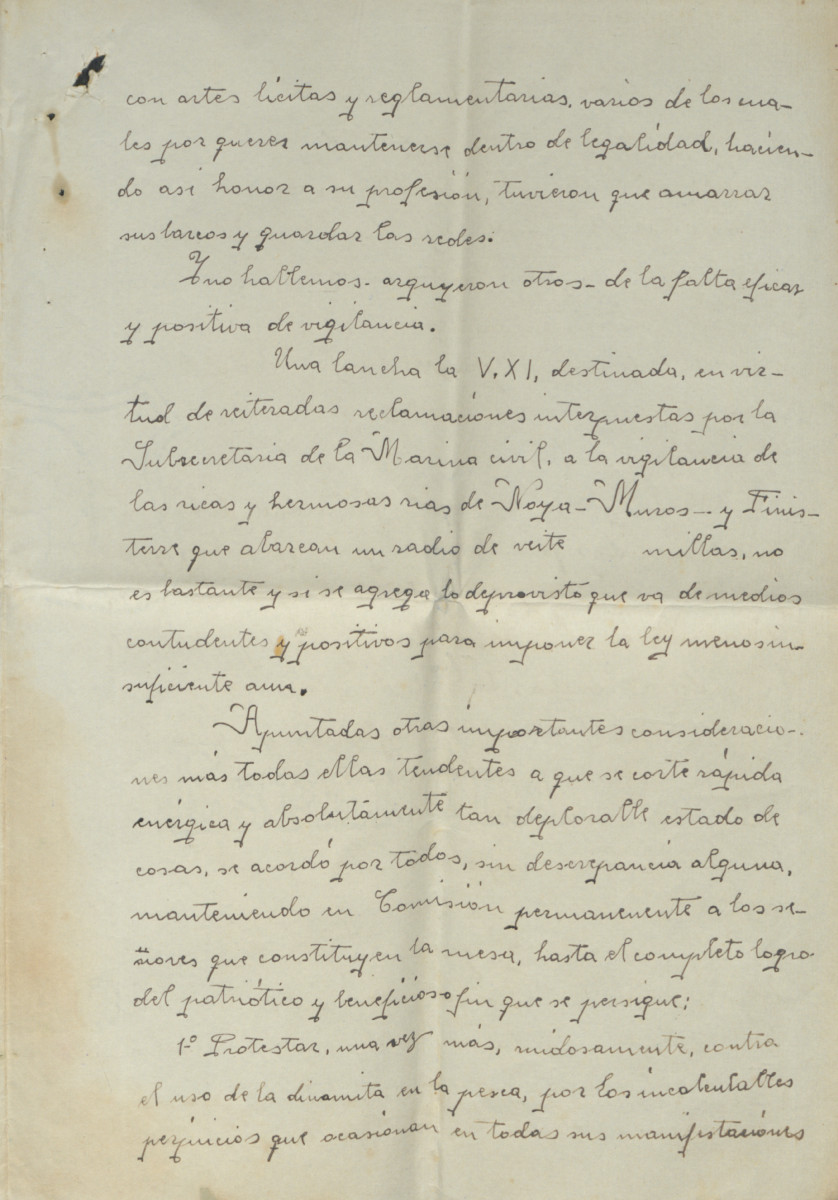 con artes lícitas y reglamentarias, varios de los cua-
les por querer mantenerse dentro de legalidad, hacien-
do asi honor a su profesión, tuvieron que amarrar
sus barcos y guardar las redes.
Y no hablemos - arguyeron otros - de la falta eficaz
y positiva de vigilancia.
Una lancha la V. XI, destinada, en vir-
tud de reiteradas reclamaciones interpuestas por la
Subsecretaria de la Marina civil, a la vigilancia de
las ricas y hermosas rias de Noya - Muros - y Finis-
terre que abarcan un radio de veite millas, no
es bastante y si se agrega lo deprovisto que va de medios
contudentes y positivos para imponer la ley menos in-
suficiente aun.
Apuntadas otras importantes consideracio-
nes más todas ellas tendentes a que se corte rápida
enérgica y absolutamente tan deplorable estado de
cosas, se acordó por todos, sin descrepancia alguna,
manteniendo en Comisión permanenente a los se-
ñores que constituyen la mesa, hasta el completo logro
del patriótico y beneficioso fin que se persigue:
1º Protestar, una vez más, ruidosamente, contra
el uso de la dinamita en la pesca, por los incalculables
perjuicios que ocasionan en todas sus manifestaciones